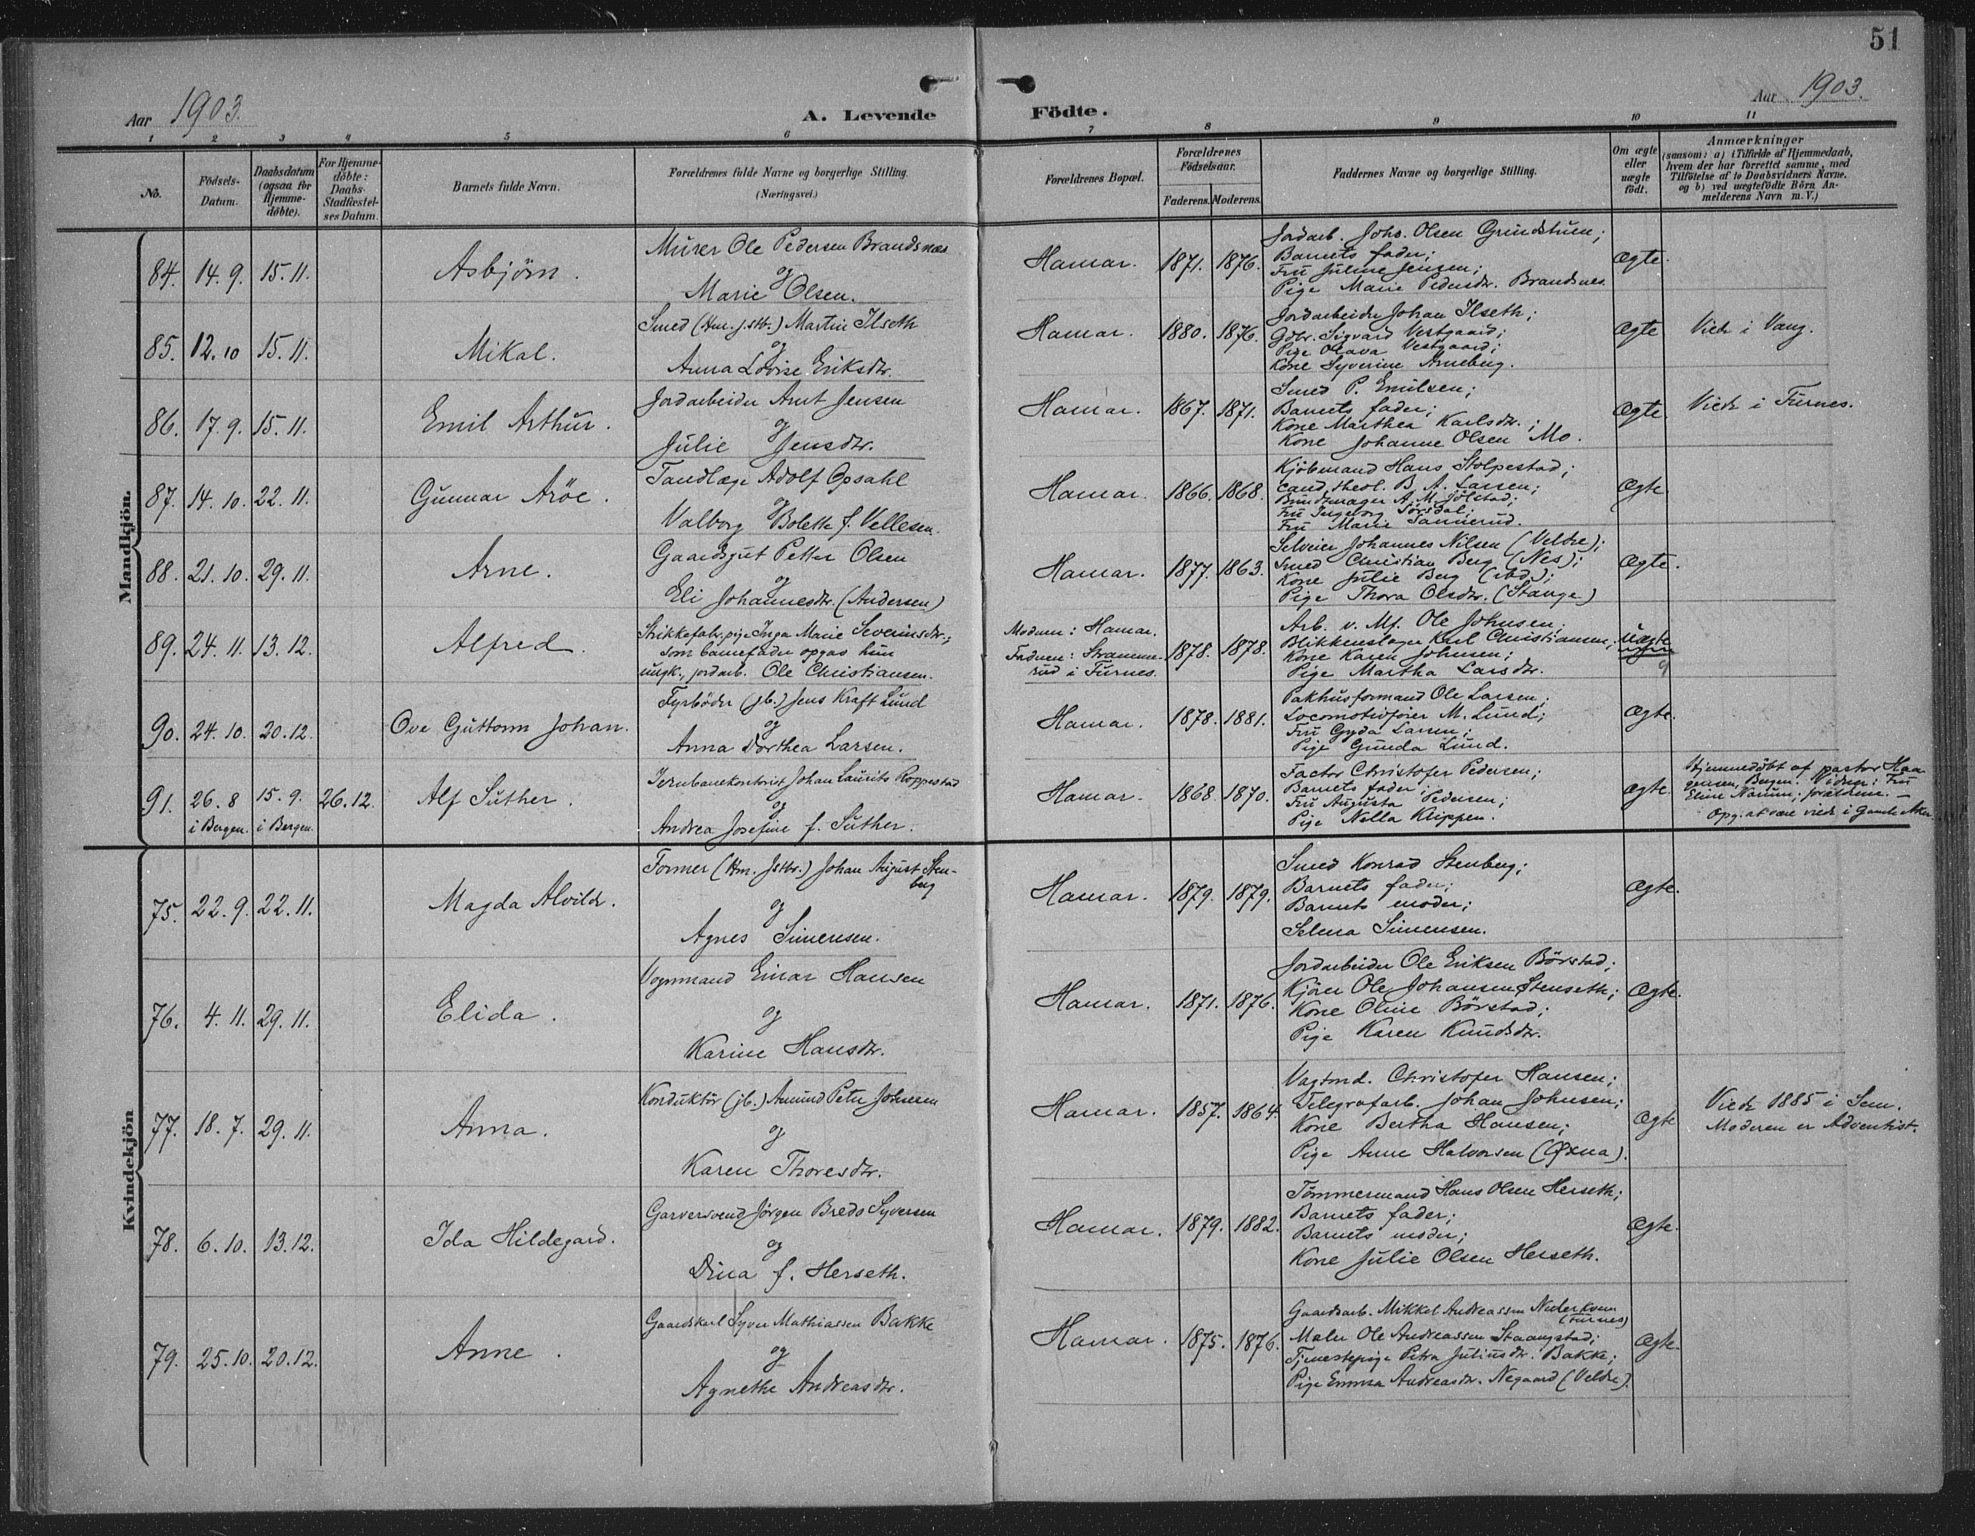 51
Aar 1903.
A. Levende
Födte.
Aar 1903.
1 2 3 4 5 6 7 8 9 10 11
No.
Födsels-
Datum.
Daabsdatum
(ogsaa for
Hjemme-
döbte).
For Hjemme-
döbte:
Daabs-
Stadfæstel-
ses Datum.
Barnets fulde Navn.
Forældrenes fulde Navne og borgerlige Stilling.
(Næringsvei.)
Forældrenes Bopæl.
Forældrenes
Födselsaar.
Faderens. Moderens.
Faddernes Navne og borgerlige Stilling.
Om ægte
eller
uægte
födt.
Anmærkninger
(saasom: a) i Tilfælde af Hjemmedaab,
hvem der har forrettet samme, med
Tilföielse af to Daabsvidners Navne.
og b) ved uægtefödte Börn An-
melderens Navn m. V.)
Mandkjön.
84. 14. 9. 15. 11. Asbjørn.
Murer Ole Pedersen Brandsnæs
og
Marie Olsen.
Hamar. 1871. 1876.
Jordarb. Johs. Olsen Grundstuen;
Barnets fader;
Fru Juline Jensen;
Pige Marie Pedersdr. Brandsnes.
Ægte.
85. 12. 10 15. 11. Mikal.
Smed (Hm. jstb.) Martin Ilseth
og
Anna Lovise Eriksdr.
Hamar. 1880. 1876.
Jordarbeider Johan Ilseth;
Gbr. Sigvard Vestgaard;
Pige Olava Vestgaard;
Kone Syverine Arneberg.
Ægte Viede i Vang.
86. 17. 9. 15. 11. Emil Arthur.
Jordarbeider Arnt Jensen
og
Julie Jensdr.
Hamar. 1867. 1871.
Smed P. Emilsen;
Barnets fader;
Kone Marthea Karlsdr.;
Kone Johanne Olsen Mo.
Ægte. Viede i Furnes.
87. 14. 10. 22. 11. Gunnar Arøe.
Tandlæge Adolf Opsahl
og
Valborg Bolette f. Vellesen.
Hamar. 1866. 1868.
Kjøbmand Hans Stolpestad;
cand. theol. B. A. Larsen;
Bundtmager A. M. Jølstad;
Fru Ingeborg Sørsdal;
Fru Marie Sannerud.
Ægte.
88. 21. 10. 29. 11. Arne.
Gaardsgut Petter Olsen
og
Eli Johannesdr. (Andersen)
Hamar. 1877. 1863.
Selveier Johannes Nilsen (Veldre);
Smed Christian Berg (Nes);
Kone Julie Berg (ibd.);
Pige Thora Olsdr. (Stange)
Ægte.
89. 24. 11. 13. 12. Alfred.
Strikkefabr.pige Inga Marie Severinsdr.;
som barnefader opgas hun
ungk., jordarb. Ole Christiansen.
Moderen: Hamar.
Faderen: Stramme-
rud i Furnes.
1878. 1878.
Arb. v. Mf. Ole Johnsen;
Blikkenslager Karl Christiansen;
Kone Karen Johnsen;
Pige Martha Larsdr.
Uægte
90. 24. 10. 20. 12. Ove Guttorm Johan.
Fyrbøder (jb.) Jens Kraft Lund
og
Anna Dorthea Larsen.
Hamar. 1878. 1881.
Pakhusformand Ole Larsen;
Locomotivfører M. Lund;
Fru Gyda Larsen;
Pige Gunda Lund.
Ægte.
91. 26. 8 15. 9. 26. 12. Alf Suther.
i Bergen. i Bergen.
Jernbanekontorist Johan Laurits Roppestad
og
Andrea Josefine f. Suther.
Hamar. 1868. 1870.
Factor Christofer Pedersen;
Barnets fader;
Fru Augusta Pedersen;
Pige Nella Klippen.
Ægte.
Hjemmedøbt af pastor Haa-
gensen, Bergen. Vidner: Fru
Eline Narum; forældrene. —
Opg. at være viede i Gamle Aker.
Kvindekjön
75. 22. 9. 22. 11. Magda Alvilde.
Former (Hm. Jstbr.) Johan August Sten-
berg
og
Agnes Simensen.
Hamar. 1879. 1879.
Smed Konrad Stenberg;
Barnets fader;
Barnets moder;
Selma Simensen.
Ægte.
76. 4. 11. 29. 11. Elida.
Vognmand Einar Hansen
og
Karine Hansdr.
Hamar. 1871. 1876.
Jordarbeider Ole Eriksen Børstad;
Kjører Ole Johansen Stenseth;
Kone Oline Børstad;
Pige Karen Knudsdr.
Ægte.
77. 18. 7. 29. 11. Anna.
Konduktør (jb.) Amund Peter Johnsen
og
Karen Thoresdr.
Hamar. 1857. 1864.
Vagtmd. Christofer Hansen;
Telegrafarb. Johan Johnsen;
Kone Bertha Hansen;
Pige Anne Halvorsen (Øxna).
Ægte
Viede 1885 i Sem.
Moderen er Adventist.
78. 6. 10. 13. 12. Ida Hildegard.
Garversvend Jørgen Bredo Syversen
og
Dina f. Herseth.
Hamar. 1879. 1882.
Tømmermand Hans Olsen Herseth;
Barnets fader;
Barnets moder;
Kone Julie Olsen Herseth.
Ægte.
79. 25. 10. 20. 12. Anne.
Gaardskarl Syver Mathiassen Bakke
og
Agnethe Andreasdr.
Hamar. 1875. 1876.
Gaardsarb. Mikkel Andreassen Nederkvern
(Furnes)
Maler Ole Andreassen Staangstad;
Tjenestepige Petra Juliusdr. Bakke;
Pige Emma Andreasdr. Negaard (Veldre).
Ægte.